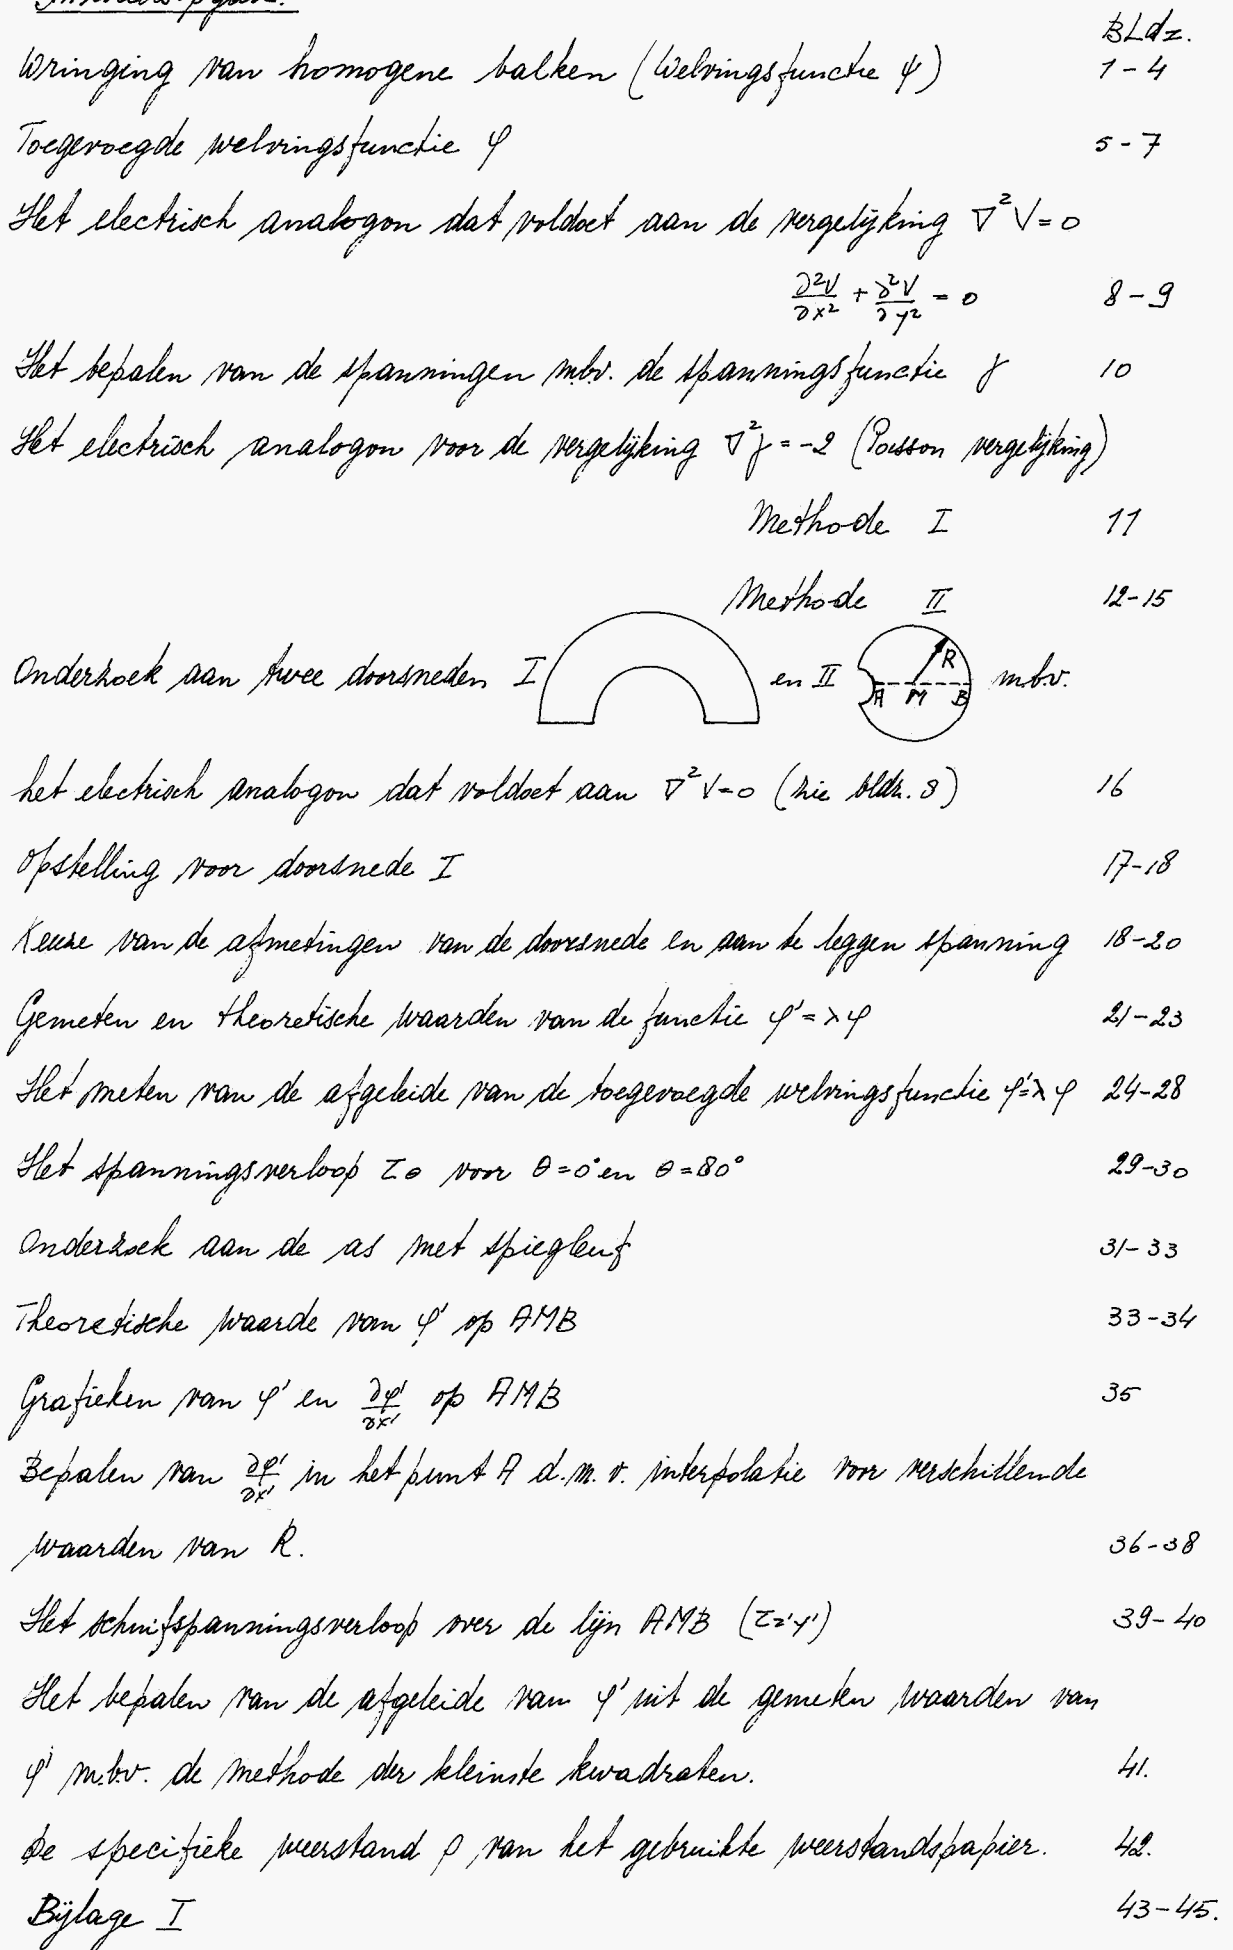 Inhoudsopgave.
BLdz.
Wringing van homogene balken (Welvingsfunctie ψ) 1-4
Toegevoegde welvingsfunctie φ 5-7
Het electrisch analogon dat voldoet aan de vergelijking ∇²V=0
∂²V/∂x² + ∂²V/∂y² = 0 8-9
Het bepalen van de spanningen m.b.v. de spanningsfunctie 10
Het electrisch analogon voor de vergelijking = -2 (Poisson vergelijking)
Methode I 11
Methode II 12-15
Onderzoek aan twee doorsneden I en II m.b.v.
R
A M B
het electrisch analogon dat voldoet aan ∇²V=0 (zie bldz. 8) 16
Opstelling voor doorsnede I 17-18
Keuze van de afmetingen van de doorsnede en aan te leggen spanning 18-20
Gemeten en theoretische waarden van de functie φ'=λφ 21-23
Het meten van de afgeleide van de toegevoegde welvingsfunctie φ'=λφ 24-28
Het spanningsverloop τθ voor θ=0° en θ=80° 29-30
Onderzoek aan de as met spiegleuf 31-33
Theoretische waarde van φ' op AMB 33-34
Grafieken van φ' en ∂φ'/∂x' op AMB 35
Bepalen van ∂φ'/∂x' in het punt A d.m.v. interpolatie voor verschillende
waarden van R. 36-38
Het schuifspanningsverloop over de lijn AMB (τz'y') 39-40
Het bepalen van de afgeleide van φ' uit de gemeten waarden van
φ' m.b.v. de methode der kleinste kwadraten. 41.
De specifieke weerstand ρ van het gebruikte weerstandspapier. 42.
Bijlage I 43-45.